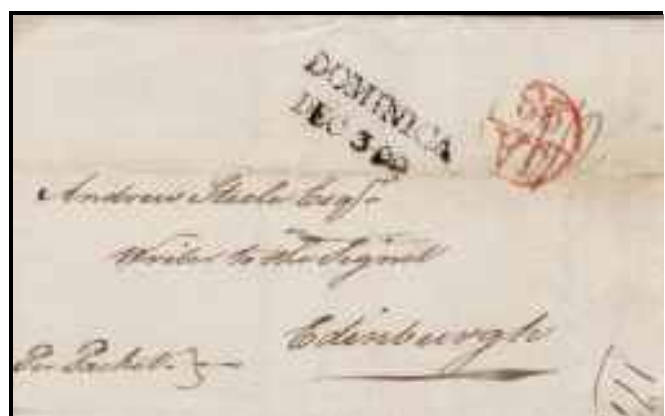 DOMINICA
DEC 3 00
Andrew Steele Esqr
Writer to the Signet
Edinburgh
Per Packet